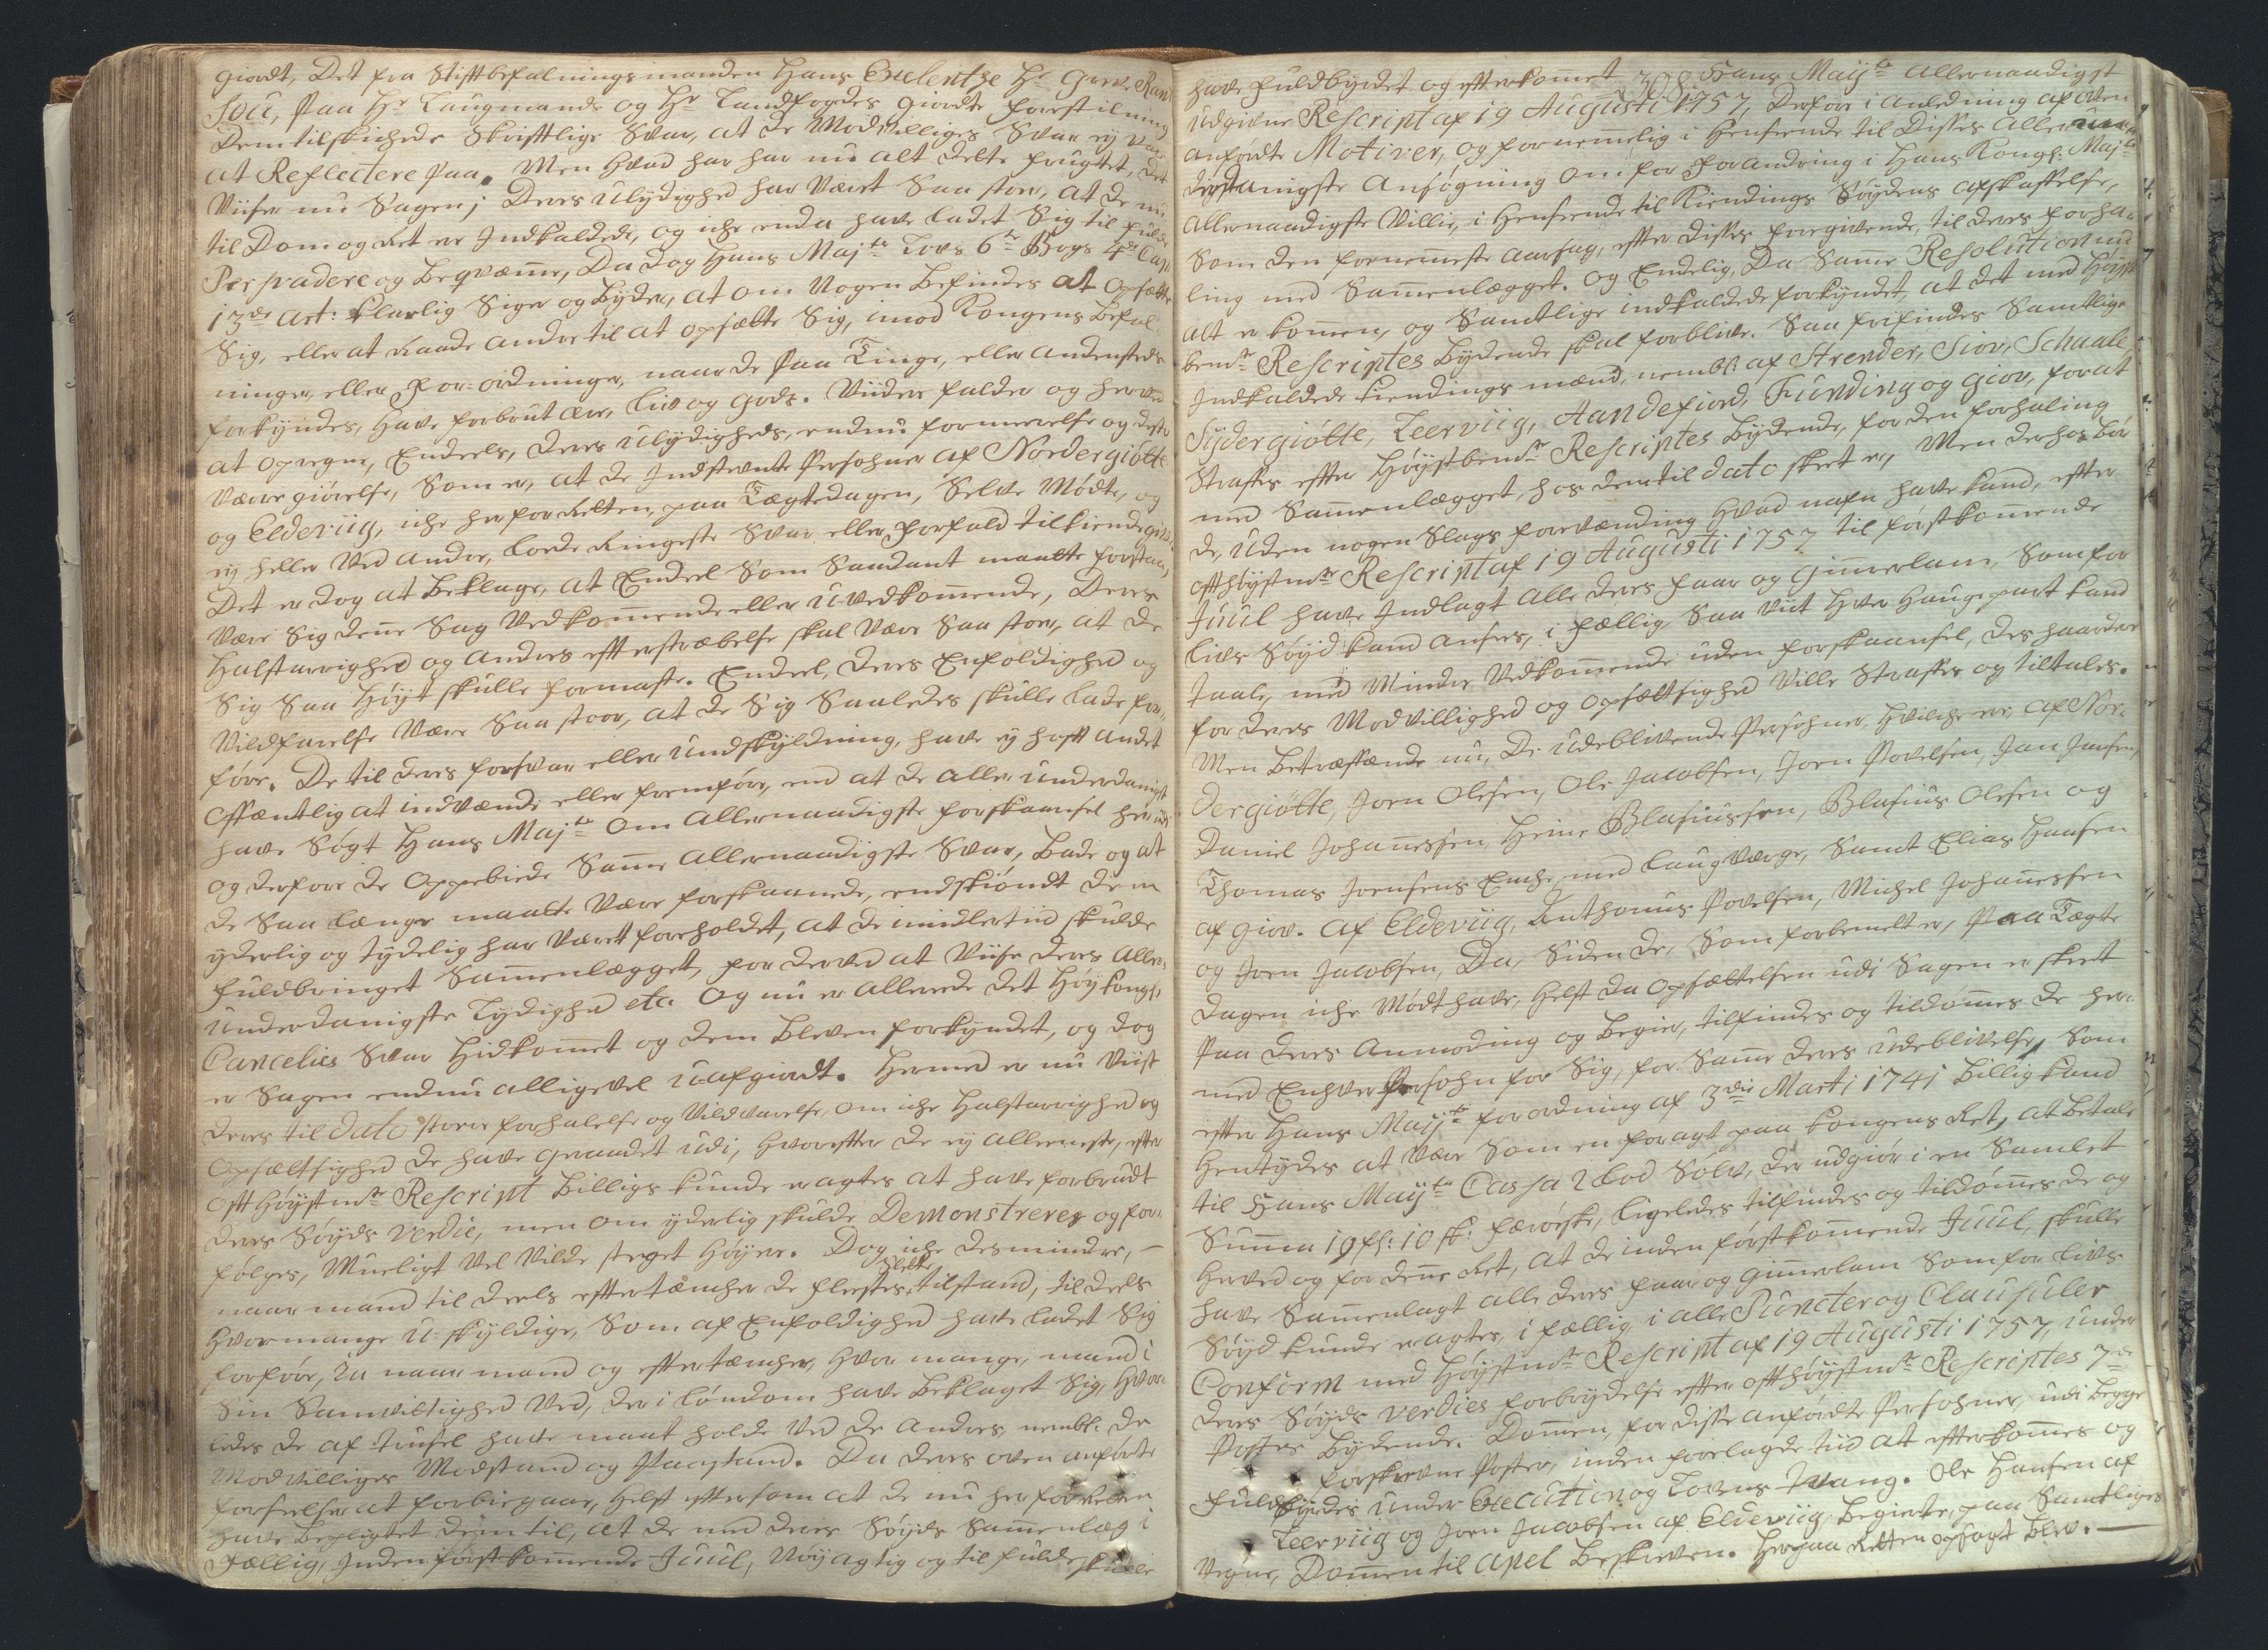 giordt, Det fra Stiftbefalningsmanden Hans Excelentze Hr. Greve Ran
Sou, paa Hr. Laugmands og Hr. Landfogdes giordte forestilning
Dem tilskichede Skriftlige Svar, at de Modvilliges Svar ey var
at Reflectere paa. Men hvad har har nu alt dette frugtet, det
Viiser nu Sagen; Deres Ulydighed har Været Saa stor, at de nu
til Dom og Ret er Indkaldede, og iche enda have ladet Sig til fulde
Persvadere og beqvæmme, Da dog Hans Majts. Lovs 6te Bogs 4de Capt.
13de art: klarlig Siger og byder, at om Nogen befindes at opsætte
Sig, eller at raade andre til at opsætte Sig, imod Kongens befal-
ninger, eller For-ordninger, naar de paa Tinge, eller andensteds
forkyndes, have forbrut ære, liv og gods. Viidere falder og herved
at opregne, Endeels, deres Ulydigheds, endnu formeerelse og desto
værre giørelse, Som er, at de Indstevnte Persohner af Nordergiøtte
og Eldeviig, iche her for Retten, paa Tægtedagen, Selve Mødte, og
ey heller Ved andre, lode Ringeste Svar eller forfald tilkiendegive.
Det er dog at beklage, at Endeel Som Saadant maatte forstaae,
være Sig denne Sag Vedkommende eller Uvedkommende, Deres
Halstarrighed og andres efterstræbelse skal være Saa stor, at de
Sig Saa høyt skulle formaste. Endeel, deres Enfoldighed og
Vildfarelse være Saa stoer, at de Sig Saaledes skulle lade for-
føre. De til deres forsvar eller Undskyldning, have ey haft andet
offentlig at indvænde eller fremføre, end at de aller underdanigst
have Søgt Hans Majts. om allernaadigste forskaansel herudi
og derfore de oppebiede Samme allernaadigste Svar, bade og at
de Saa længe maatte være forskaanede, endskiøndt dem
yderlig og tydelig har været foreholdet, at de imidlertiid skulde
fuldbringet Sammenlægget, for derved at Viise deres aller-
underdanigste Lydighed etc. Og nu er allerede det Høy kongl.
Cancelies Svar hidkommet og dem bleven forkyndet, og dog
er Sagen endnu alligevel uafgiordt. Hermed er nu Viist
deres til dato større forhalelse og Vildvarelse, om iche Halstarrighed og
opsætsighed de have graadet udi, hvorefter de ey allerneeste, efter
oft Høystmte. Rescript billigs kunde eragtes at have forbrudt
deres Søyds Verdie, men om yderlig skulde Demonstreres og for-
følges, Mueligt vel Vilde steget høyere. Dog iche desmindre, —
naar mand til deels eftertæncher de fleestes slette tilstand, til deels
hvor mange U-skyldige, Som af Enfoldighed have ladet Sig
forføre, Ja naar mand og eftertæncher, hvor mange, mand i
Sin Samvittighed Ved, der i løndom have beklaget Sig, hvor-
ledes de af trusel have maat holde Ved de andres, nembl. de
Modvilliges Modstand og Paastand. Da deres oven anførte
forseelser at forbiegaae, helst eftersom at de nu her for Retten
have bepligtet dem til, at de med deres Søyds Sammenlæg i
Fællig, Inden først kommende Juul, Nøyagtig og til fulde skulle
have fuldbyrdet og efterkommet 308 Hans Mayts. allernaadigst
udgivne Rescript af 19 Augusti 1757, Derfore i anledning af oven
anførdte Motiver, og fornemmelig i henseende til Disses aller under-
danigste ansøgning om for forandring i Hans Kongl: Majts.
allernaadigste Villie, i henseende til Kiendings Søydens afskaffelse,
Som den fornemmeste aarsag, efter disses foregivende, til deres forha-
ling med Sammenlægget. Og Endelig, Da Samme Resolution nu
alt er kommen, og Samtlige indkaldede forkyndet, at det med Høyst
bemte. Rescriptes bydende skal forblive. Saa frifindes Samtlige
Indkaldede Kiendingsmænd, nembl: af Strender, Siov, Schaale
Sydergiøtte, Leerviig, Aandefiord, Funding og Giov, for at
Straffes efter Høystbemte. Rescriptes bydende, for den forhaling
med Sammenlægget, hos dem til dato skeet er, Men derhos bør
de, uden nogen Slags forevending hvad nafn have kand, efter
oft høystmte. Rescript af 19 Augusti 1757 til først kommende
Juul have Indlagt alle deres faar og gimmerlam, Som for
livs Søyd kand ansees, i Fællig, Saa Viit hver hauge part kand
taale, med Mindre Vedkommende uden forskaansel, des haardere
for deres Modvillighed og opsætsighed Ville Straffes og tiltales.
Men betreffende nu, De udeblivende Persohner, hvilche ere, af Nor-
dergiøtte, Joen Olesen, Ole Jacobsen, Joen Povelsen, Jan Jansen,
Daniel Johannessen, Heine Blasiussen, Blasius Olesen og
Thomas Joensens Enche med laugverge, Samt Elias Hansen
af Giov. Af Eldeviig, Anthonius Povelsen, Michel Johannessen
og Joen Jacobsen, Da, Siden de, Som forbemelt er, paa Tægte
dagen iche Mødt have, helst da opsættelsen udi Sagen er skeet
paa deres anmoding og begier, tilfindes og tildømmes de her-
med Enhver Persohn for Sig, for Samme deres udeblivelse, Som
efter Hans Majts. forordning af 3die Marti 1741 billig kand
hentydes at være Som en foragt paa kongens Ret, at betale
til Hans Mayts. Cassa 2 lod Sølv, der udgiør i en Samlet
Summa 19 fl: 10 sk: færøiske, ligeledes tilfindes og tildømmes de og
herved og for denne Ret, at de inden først kommende Juul, skulle
have Sammenlagt alle deres faar og gimmerlam Som for livs
Søyd kunde eragtes, i Fællig, i alle Puncter og Clausuler
Conform med Høystmte. Rescript af 19 Augusti 1757, under
deres Søyds Verdies forbrydelse efter oft høystmte. Rescriptes 7de
Postes bydende. Dommen, for disse anførdte Persohner, udi begge
forskrevne Poster, inden forelagde tiid at efterkommes og
fuldbyrdes under Execution og Lovens Tvang. Ole Hansen af
Leerviig og Joen Jacobsen af Eldeviig, begierte, paa Samtliges
Vegne, Dommen til Apel beskreven. Herpaa Retten opsagt blev. —